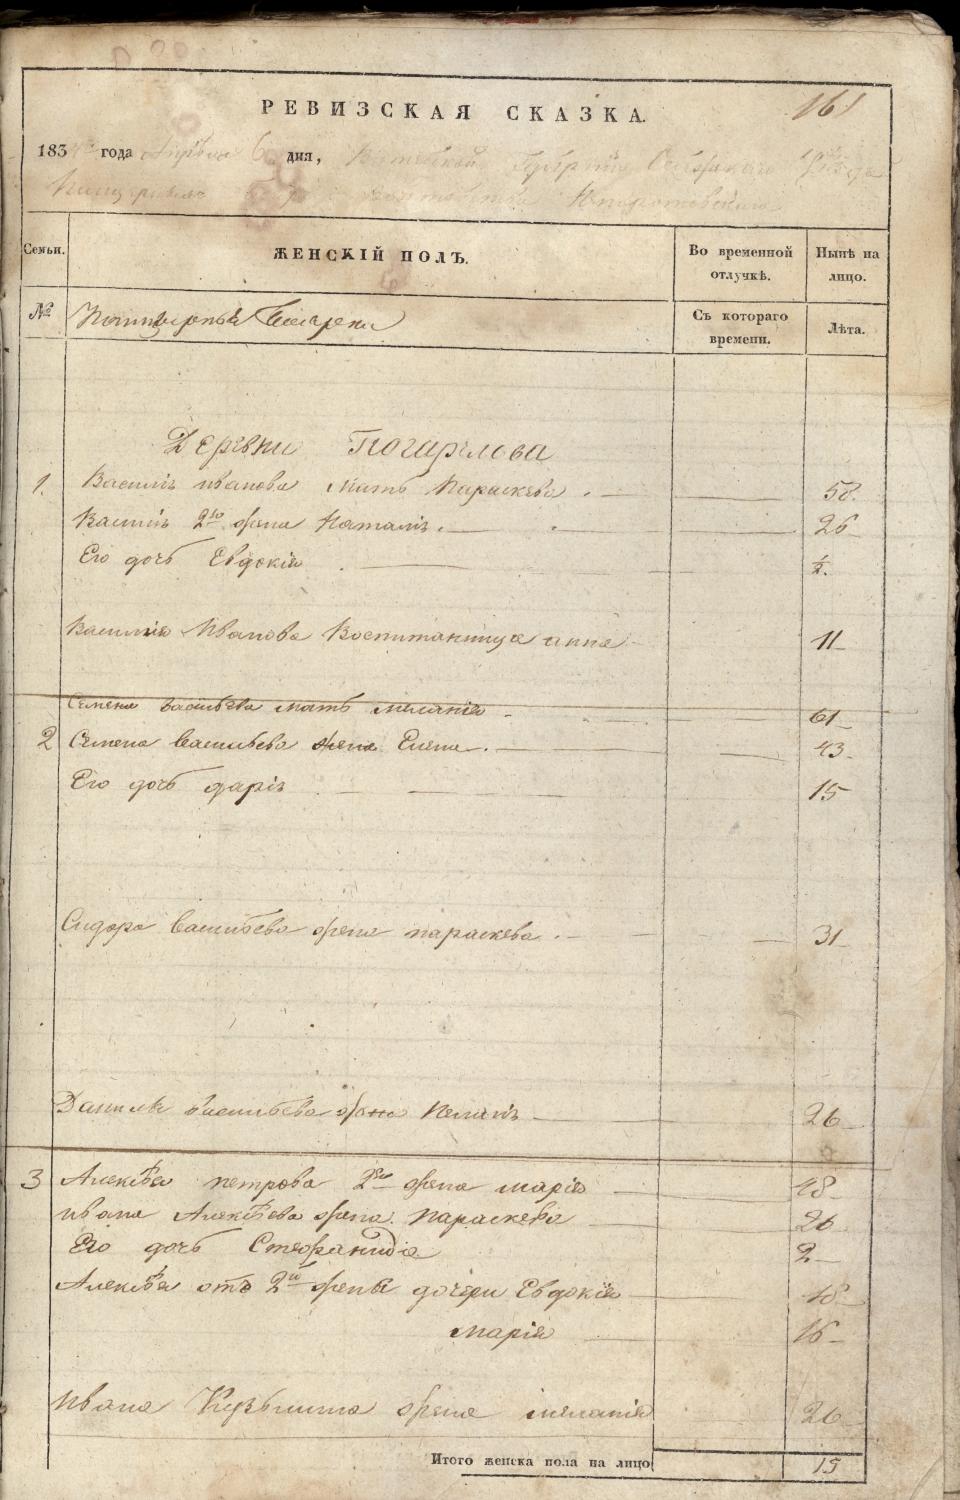 161
РЕВИЗСКАЯ СКАЗКА.
183 года Апреля 6 дня, Витебской Губернии Себежского Уезда
Семьи. ЖЕНСКІЙ ПОЛЪ. Во временной отлучкѣ. Нынѣ на лицо.
№ Съ котораго времени. Лѣта.
Деревни Погарелова
1. Василія иванова мать Параскева 58.
Василія 2ая жена Наталія 26
Его дочь Евдокія ½.
Василія Иванова Воспитанница анна 11
Семена васильева мать меланія 61
2 Семена васильева жена Елена 43
Его дочь дарія 15
Сидора васильева жена параскева 31
Данилы васильева жена 26
3 Алексѣя петрова 2ая жена марія 48
ивана Алексѣева жена параскева 26
Его дочь Стефанида 2
Алексѣя отъ 2ой жены дочери Евдокія 18
марія 16
ивана Кузьмина жена меланія 26
Итого женска пола на лицо 15